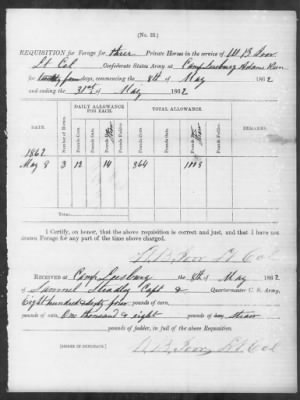 (No. 33.)
REQUISITION for Forage for three Private Horses in the service of W. B.
Lt Col Confederate States Army at Camp Leesburg Adams Run
for twenty four days, commencing the 8th of May 1862
and ending the 31st of May 1862
DAILY ALLOWANCE FOR EACH. TOTAL ALLOWANCE.
DATE. Number of Horses. Pounds Corn. Pounds Oats. Pounds Hay. Pounds Fodder. Pounds Corn. Pounds Oats. Pounds Straw Pounds Fodder. REMARKS.
1862
May 8 3 12 14 864 1008
I Certify, on honor, that the above requisition is correct and just, and that I have not
drawn Forage for any part of the time above charged.
Lt Col
RECEIVED at Camp Leesburg the 8th of May 1862
of Samuel Capt & Quartermaster C. S. Army,
Eight hundred & sixty four pounds of corn,
pounds of oats, One thousand & eight pounds of hay, straw
pounds of fodder, in full of the above Requisition.
[SIGNED IN DUPLICATE.] Lt Col